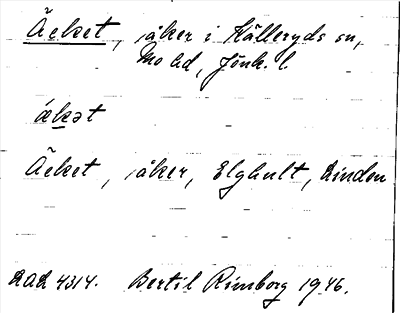 Äcket, åker i Källeryds sn,
Mo hd, Jönk. l.
ǽkət
Äcket, åker, Elghult, Linden
LAL 4314. Bertil Rimborg 1946.